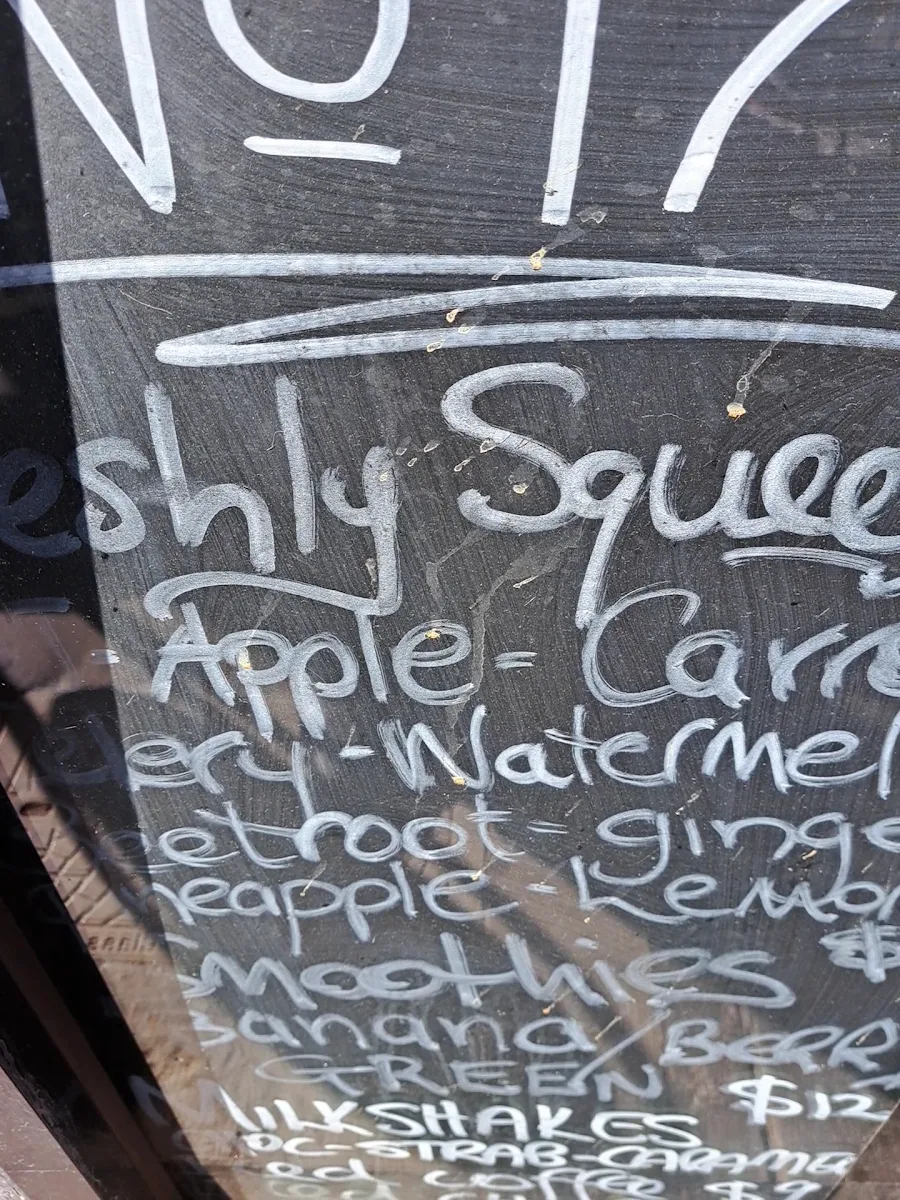 eshly Squee
- Apple - Carro
elery - Watermel
eetroot - ginge
neapple - Lemon
Smoothies $
Banana / BERR
GREEN
MILKSHAKES $12
OC-STRAB-CARAME
ed COFFEE $9